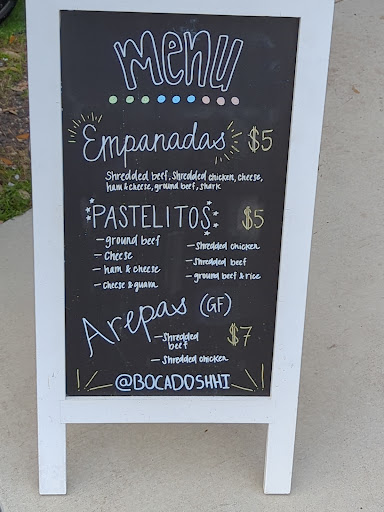 menu
Empanadas $5
Shredded beef, Shredded chicken, cheese,
ham & cheese, ground beef, shark
PASTELITOS: $5
- ground beef
- Cheese
- ham & cheese
- Cheese & guava
- Shredded chicken
- Shredded beef
- ground beef & rice
Arepas (GF) $7
- Shredded
beef
- Shredded chicken
@BOCADOSHHI